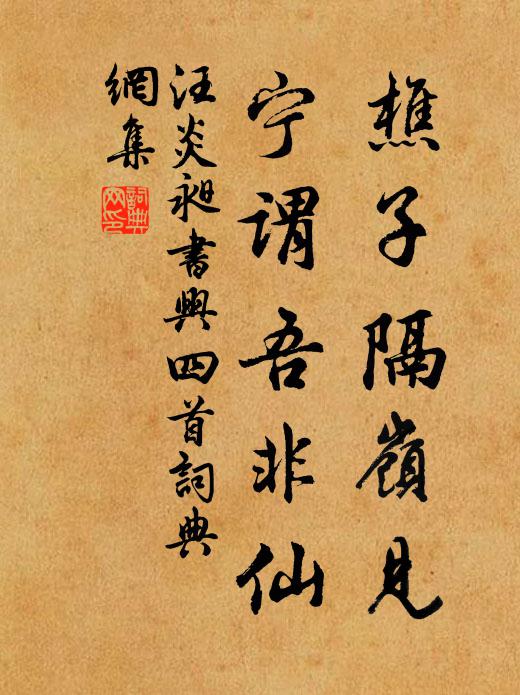 樵子隔嶺見
宁謂吾非仙
汪炎昶書興四首詞典
網集
詞典
网印